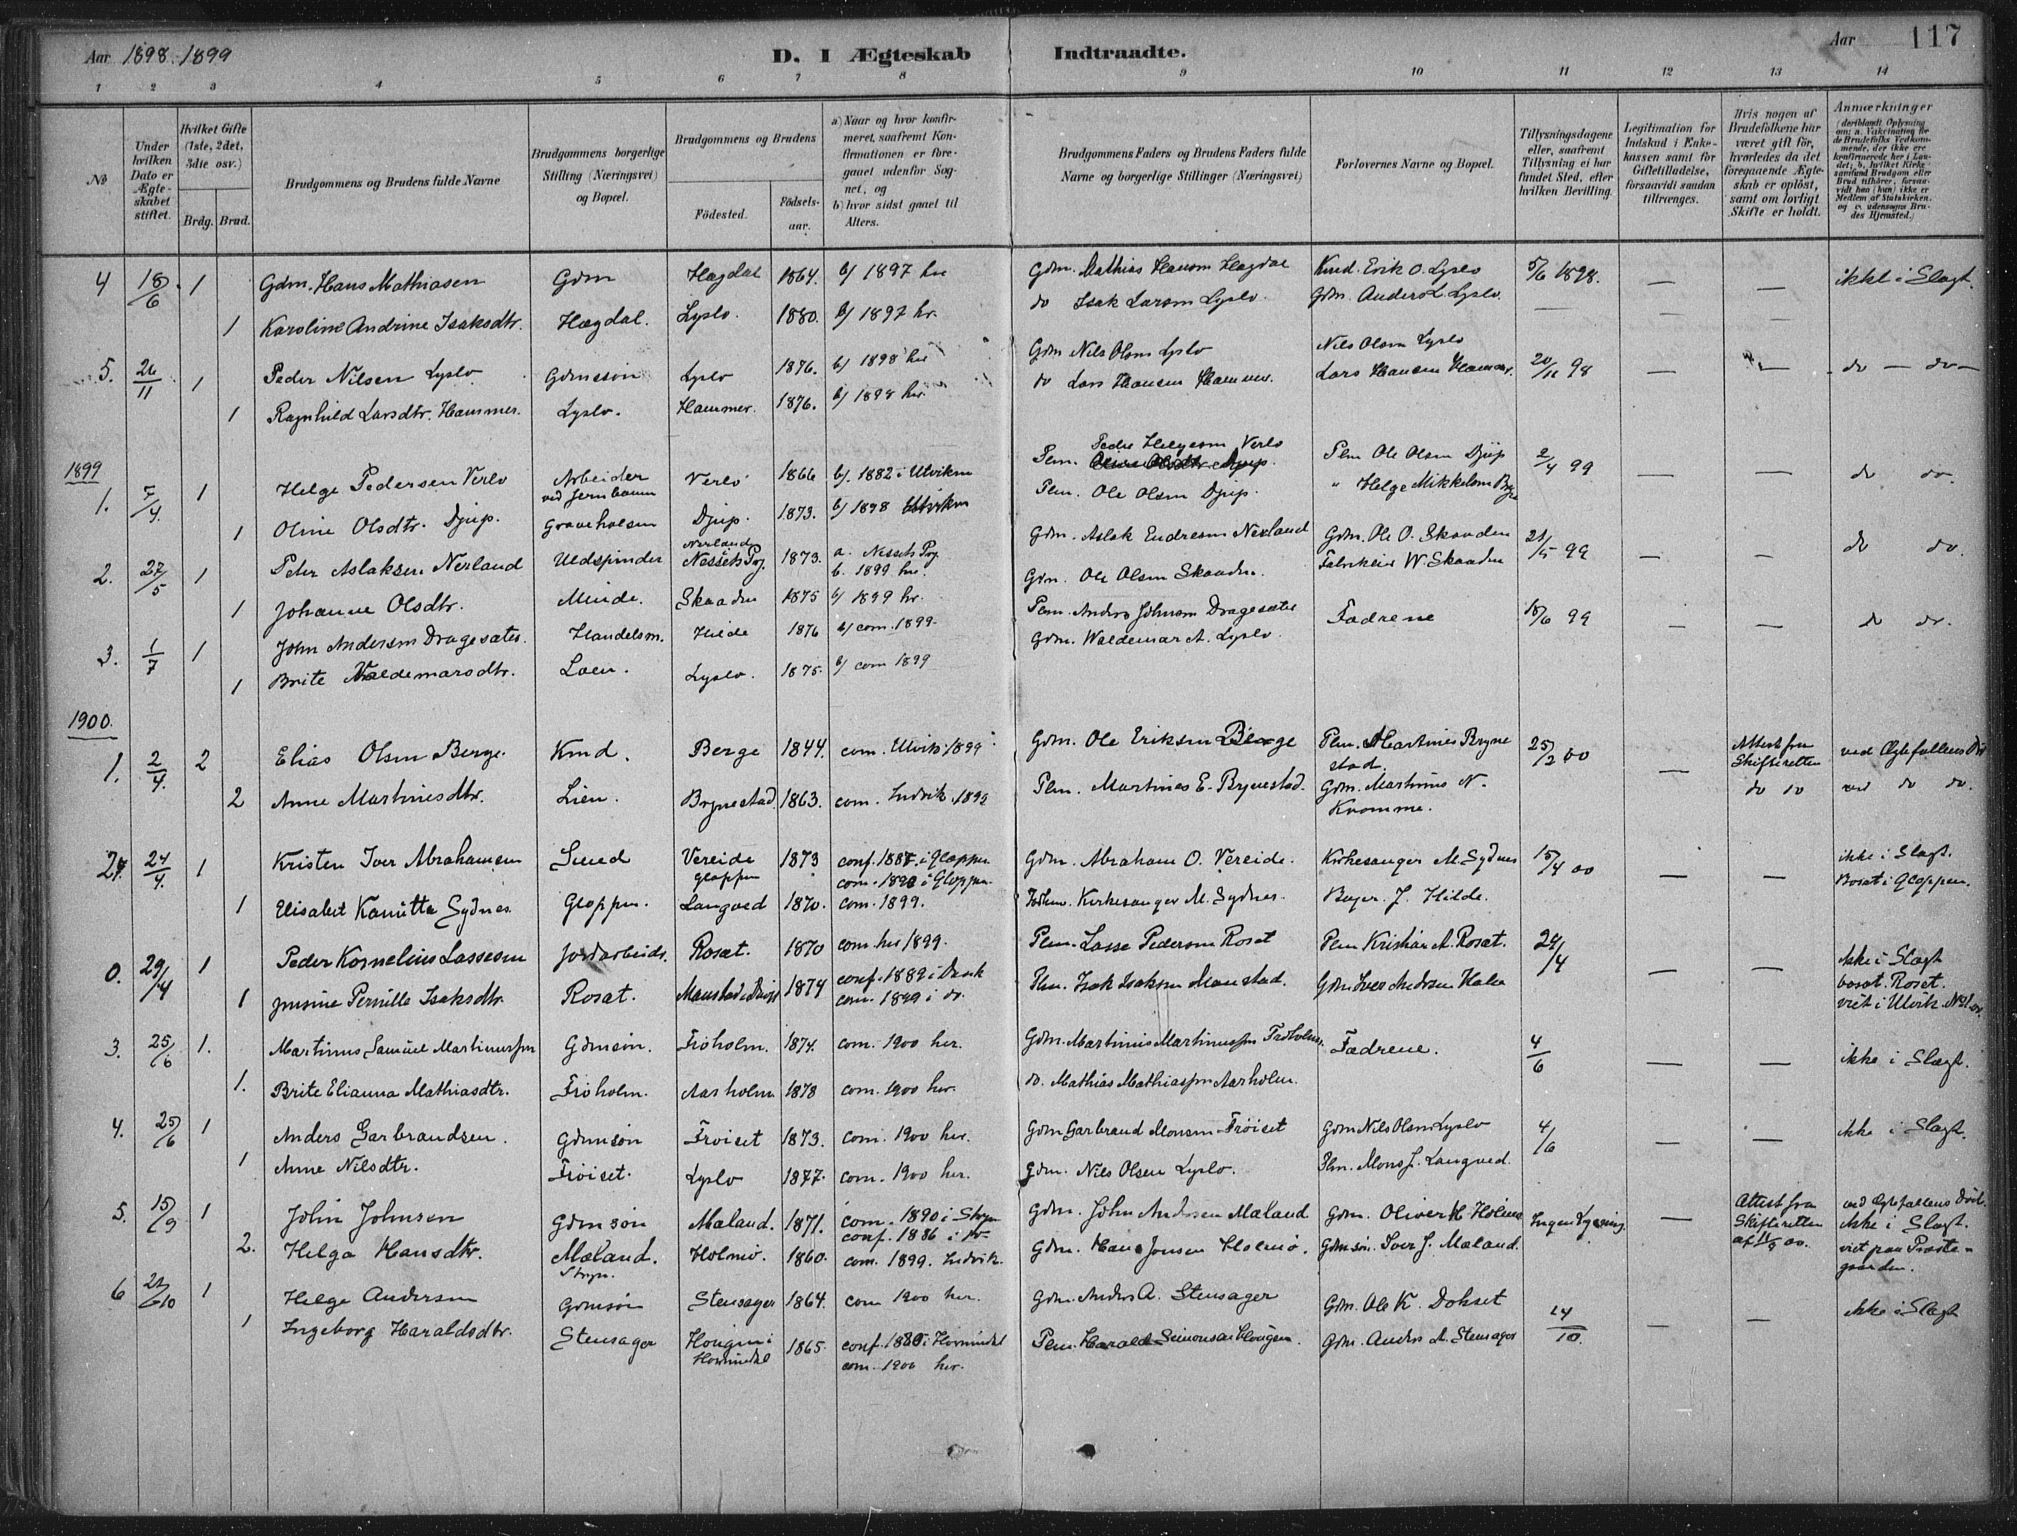 Aar 1898-1899 D. I Ægteskab Indtraadte. Aar 117
1 2 3 4 5 6 7 8 9 10 11 12 13 14
No
Under hvilken Dato er Ægteskabet stiftet.
Hvilket Gifte (1ste, 2det, 3die osv.)
Brdg. Brud.
Brudgommens og Brudens fulde Navne
Brudgommens borgerlige Stilling (Næringsvei) og Bopæl.
Brudgommens og Brudens
Fødested. Fødselsaar.
a) Naar og hvor konfirmeret, saafremt Konfirmationen er foregaaet udenfor Sognet, og
b) hvor sidst gaaet til Alters.
Brudgommens Faders og Brudens Faders fulde Navne og borgerlige Stillinger (Næringsvei)
Forlovernes Navne og Bopæl.
Tillysningsdagene eller, saafremt Tillysning ei har fundet Sted, efter hvilken Bevilling.
Legitimation for Indskud i Enkekassen samt for Giftetilladelse, forsaavidt saadan tiltrænges.
Hvis nogen af Brudefolkene har været gift før, hvorledes da det foregaaende Ægteskab er opløst, samt om lovligt Skifte er holdt.
Anmærkninger
4 18/6 1 Gdm. Hans Mathiasen Gdm Hægdal 1864. b/ 1897 her Gdm. Mathias Hansen Hægdal Kmd. Erik O. Lyslo 5/6 1898. — — ikke i Slægt.
1 Karoline Andrine Isaksdtr. Hægdal. Lyslo. 1880. b/ 1897 hr. do Isak Larsen Lyslo. Gdm. Anders L. Lyslo.
5. 26/11 1 Peder Nilsen Lyslo Gdmssøn Lyslo 1876. b/ 1898 her Gdm Nils Olsen Lyslo Nils Olsen Lyslo 20/11 98 — — do — do —
1 Ragnhild Larsdtr. Hammer. Lyslo. Hammer. 1876. b/ 1898 her. do Lars Hansen Hammer. Lars Hansen Hammer.
1899
1. 7/4 1 Helge Pedersen Verlo Arbeider ved Jernbanen Verlo 1866 b/. 1882 i Utviken Plm. Peder Helgesen Verlo Plm Ole Olsen Djup 2/4 99 — — do do.
1 Oline Olsdtr. Djup. Gravehalsen Djup. 1873. b/ 1898 Utviken Plm. Ole Olsen Djup. " Helge Mikkelsen
2. 27/5 1 Peter Aslaksen Nerland Uldspinder Nerland Nessets Pg. 1873. a. Nessets Pg. b. 1899 her. Gdm. Aslak Endresen Nerland Gdm. Ole O. Skaaden 21/5 99 — — do do.
1 Johanne Olsdtr. Minde. Skaaden 1875 b/ 1899 hr. Gdm. Ole Olsen Skaaden. Fabrikeier W. Skaaden
3. 1/7 1 John Andersen Dragesæter. Handelsm. Hilde 1876 b/ com. 1899. Plm. Anders Johnsen Dragesæter Fædrene 18/6 99 — — do do.
1 Brite Waldemarsdtr. Loen. Lyslo. 1875. b/ com 1899 Gdm. Waldemar A. Lyslo.
1900.
1. 2/4. 2 Elias Olsen Berge. Kmd. Berge 1844. com. Utvik. 1899 Gdm. Ole Eriksen Berge Plm. Martines Brynestad. 25/2 00 — Attest fra Skifteretten ved Ægtefællens Død
2 Anne Martinesdtr. Lien. Brynestad 1863. com. Indvik. 1899 Plm. Martines E. Brynestad. Gdm. Martinus N. Kvamme. do do ved do do.
2. 24/4. 1 Kristen Iver Abrahamsen Smed Vereide Gloppen 1873 conf. 1887. i Gloppen com. 1898 i Gloppen. Gdm. Abraham O. Vereide. Kirkesanger M. Sydnes 15/4 00 — — ikke i Slægt. Bosat i Gloppen.
1 Elisabet Kanutta Sydnes. Gloppen. Langved 1870. com. 1899. Kirkesanger M. Sydnes. J. Hilde.
0. 29/4 1 Peder Kornelius Lassesen Jordarbeidr. Roset. 1870 com. her 1899. Plm. Lasse Pedersen Roset Plm Kristian A. Roset. 24/4 — — ikke i Slægt bosat. Roset.
1 Pernille Isaksdtr. Roset. Maurstad i Davik 1874 conf. 1889 i Davik com. 1899 i do. Plm. Isak Isaksen Maurstad. Gdm. Iver Andersen viet i Utvik.
3. 25/6 1. Martinus Samuel Martinussen Gdmsøn. Frøholm. 1874. com. 1900 her. Gdm. Martinus Martinussen Frøholm. Fædrene. 4/6 — — ikke i Slægt.
1. Brite Elianna Mathiasdtr. Frøholm. Aarholm 1878 com. 1900 her. do. Mathias Mathiassen Aarholm.
4. 25/6 1 Anders Garbrandsen. Gdmsøn Frøiset 1873. com. 1900 her. Gdm Garbrand Monsen Frøiset Gdm Nils Olsen Lyslo 4/6 — — ikke i Slægt.
1 Anne Nilsdtr. Frøiset. Lyslo 1877. com. 1900 her. Gdm. Nils Olsen Lyslo. Plm. Mons J. Langved.
5. 15/9 1 John Johnsen Gdmsøn Mæland. 1871. com. 1890 i Stryn Gdm. John Andersen Mæland Gdm. Oliver H Holmø Ingen Lysning. — Attest fra Skifteretten af 11/9 00. ved Ægtefællens Død. ikke i Slægt. viet paa Prestegaarden.
2. Helga Hansdtr. Mæland. Stryn. Holmø. 1860. conf. 1886 i do. com. 1899. Indvik. Gdm. Hans Jonsen Holmø. Gdmsøn. Iver J. Mæland.
6 21/10 1 Helge Andersen Gdmsøn Stensager 1864. com 1900 her. Gdm. Anders A. Stensager Gdm. Ole K. Dokset 14/10 — — ikke i Slægt
1 Ingeborg Haraldsdtr. Stensager Hougen i Hornindal 1865. conf. 1880 i Hornindal com. 1900 her. Plm. Harald Simonsen Hougen. Gdm. Anders A. Stensager